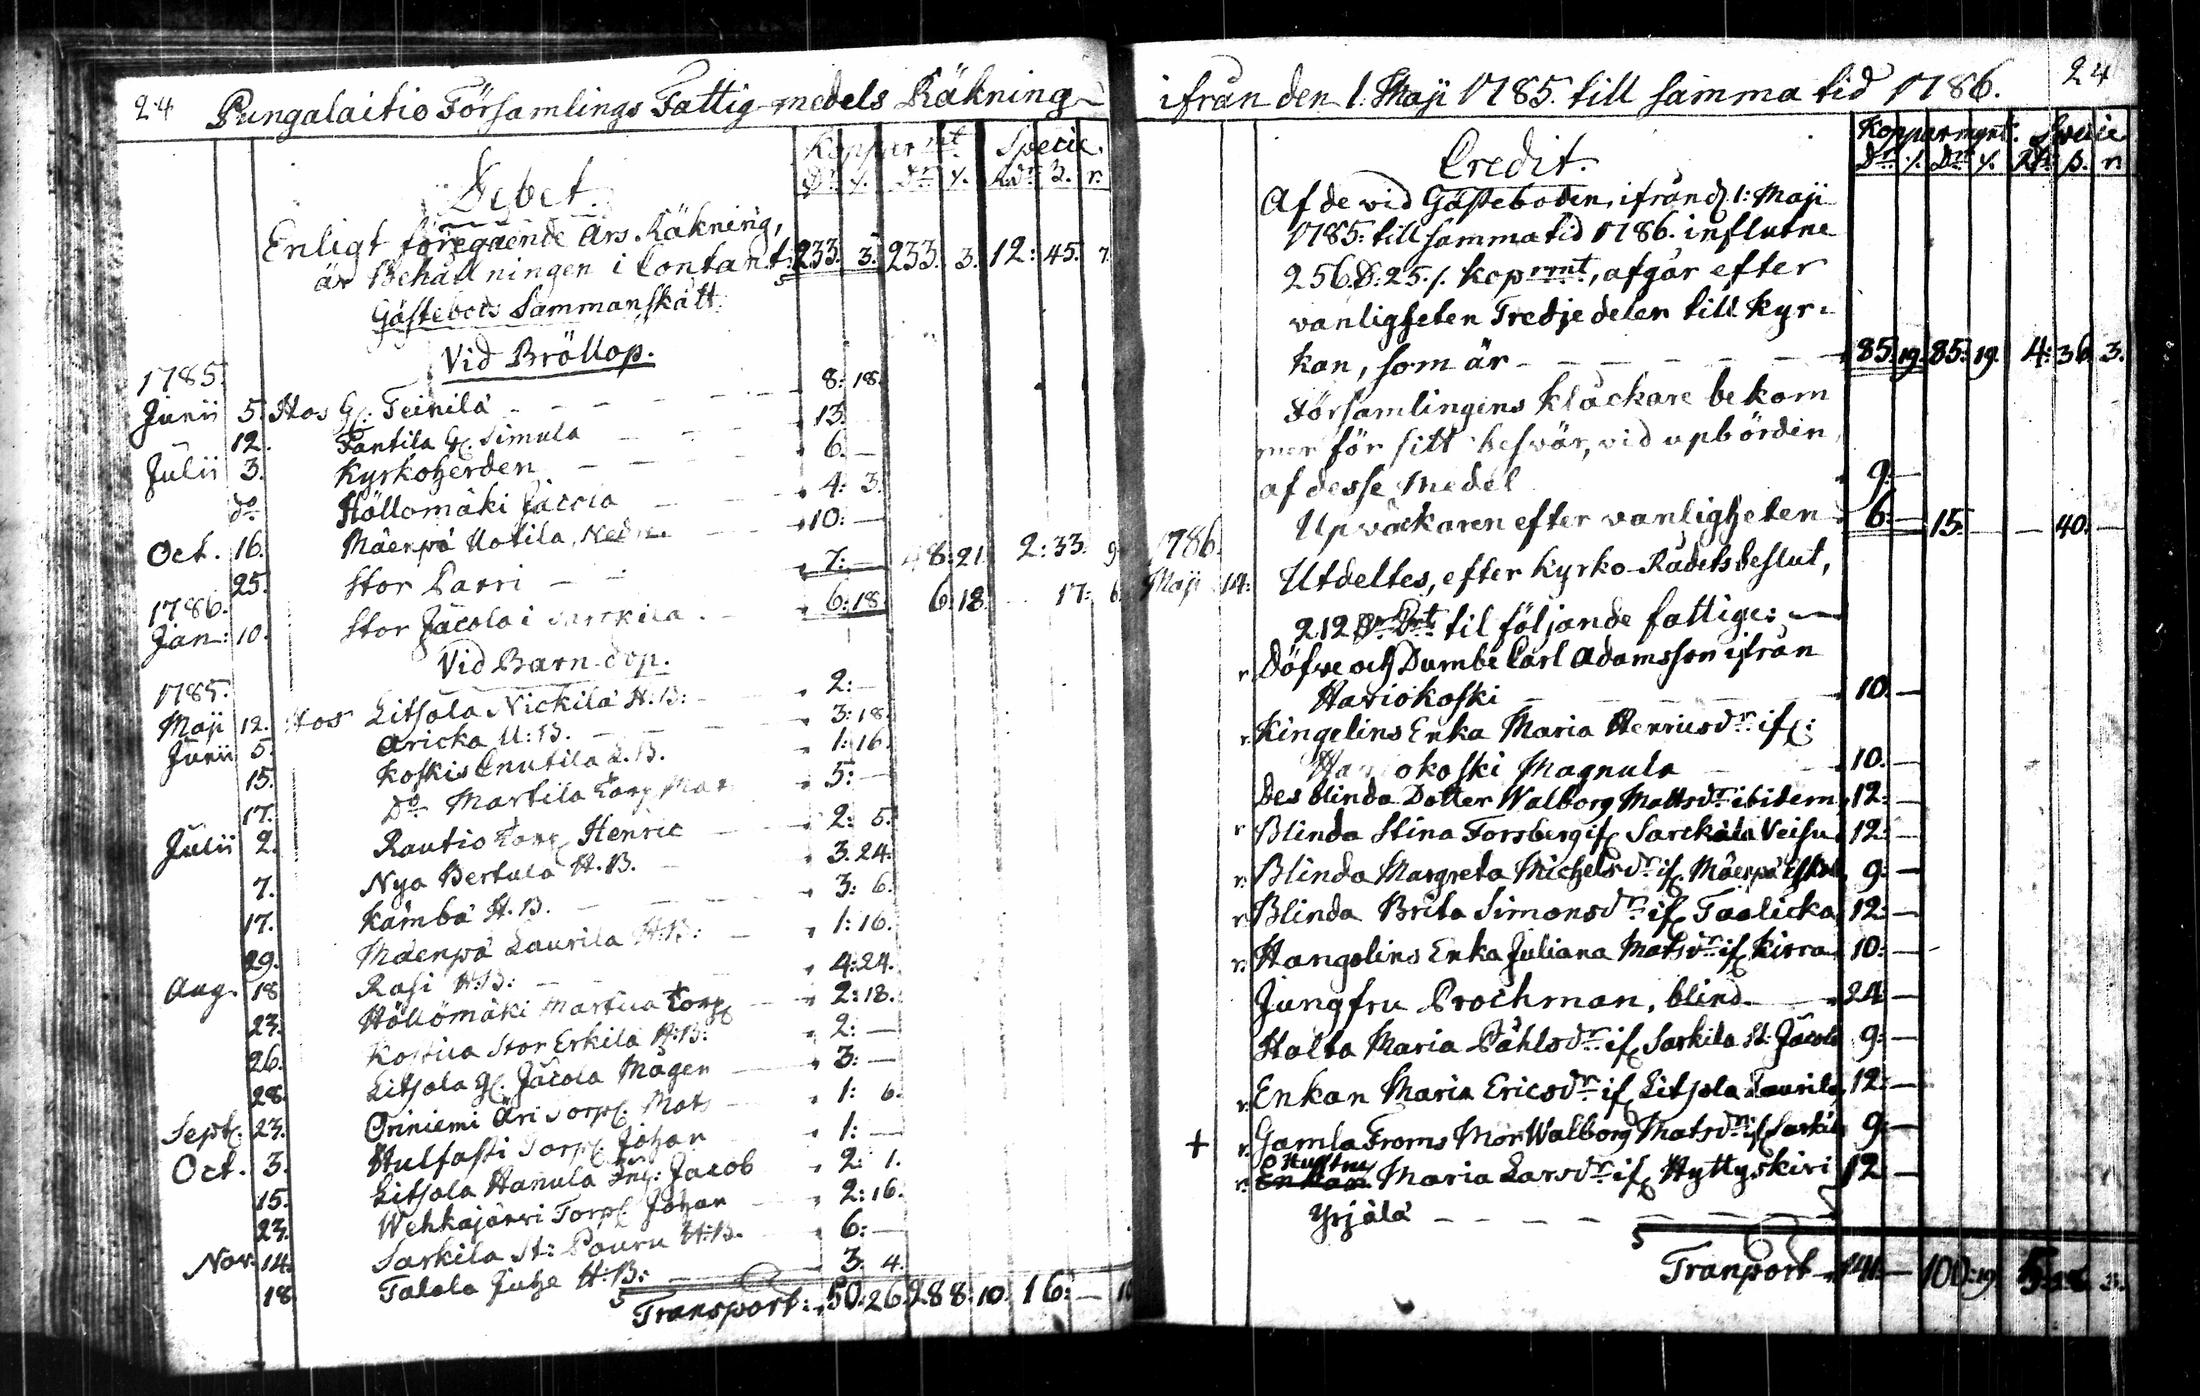 24 Pungalaitio Församlings Fattig-medels Räkning
Koppar mt Specie.
Dr. /. Dr. /. R.dr ß. r.
Debet.
Enligt föregående Års Räkning,
är Behållningen i Contant: 233. 3. 233. 3. 12: 45. 7.
Gästebods Sammanskått.
Vid Bröllop.
1785.
Junii 5. Hos G: Teinilä - - - 8: 18.
12. Pantila G. Simula - - 13.
Julii 3. Kyrkoherden - - 6. -
do Höllomäki Jaccia - 4: 3.
Oct. 16. Mäenpä Uotila, Nedre. 10: -
25. Stor Parri - - 7: - 48: 21. 2: 33. 9
1786.
Jan: 10. Stor Jacola i Sarckila. - 6: 18. 6: 18. 17: 6.
Vid Barn-dop.
1785.
Maji 12. Hos Litsola Nickilä H:B: - 2: -
Junii 5. Aricka U:B. - - 3: 18.
15. Koskis Cnutila L.B. 1: 16.
17. Do Martila Torp. Mat. 5: -
Julii 2. Rautio Torp. Henric - 2: 5.
7. Nya Bertula H.B. - 3. 24.
17. Kämbä H.B. - 3: 6.
29. Mäenpä Laurila H:B: - 1: 16.
Aug. 18 Rasi H:B: - 4: 24.
23. Höllömäki Martila Torp. 2: 18.
26. Stor Erkila H:B: 2: -
28. Litsola G. Jacola Mågen - 3: -
Sept. 23. Oriniemi Äri Torp. Mats - 1: 6.
Oct. 3. Hulfasti Torp. Johan - 1: -
15. Litsola Hanula Inh: Jacob - 2: 1.
23. Wehkajärvi Torp. Johan - 2: 16.
Nov. 14. Sarkila St: Pouru H:B. - 6: -
18 Talola Juha H:B: - 3. 4.
Transport: 50: 26. 288: 10. 16: - 10
ifrån den 1. Maji 1785. till samma tid 1786. 24
Kopparmynt. Specie
Dr. /. Dr. /. Rd. ß. r.
Credit.
Af de vid Gästeboden, ifrån d. 1: Maji
1785: till samma tid 1786. influtne
256. D: 25 /. Kop mt, afgår efter
vanligheten Tredje delen till Kyr-
kan, som är - - - - - - 85. 19. 85: 19. 4: 36. 3.
Församlingens Klåckare bekom
mer för sitt besvär, vid upbörden
af desse Medel 9: -
Upväckaren efter vanligheten 6: - 15. - - 40. -
1786.
Maji 14: Utdeltes, efter Kyrko-Rådets Beslut,
212 Dr. til följande fattige:
r. Döfve och Dumbe Carl Adamsson ifrån
Hariokoski - - - - - - 10. -
r. Kingelins Enka Maria Henricsdr. if:
Hariokoski Magnula - - 10. -
Des blinda Dotter Walborg Mattsdr. ibidem 12: -
r Blinda Stina Forsberg if. Sarckala Veisu 12: -
r. Blinda Margreta Michelsdr. if. Mäenpä 9: -
r. Blinda Brita Simonsdr. if. Taalicka 12: -
r. Hangelins Enka Juliana Matsdr. if. Kirra 10: -
Jungfru Prochman, blind. - 24 -
Halta Maria Påhlsdr. if. Sarkila St. Jacola 9: -
r. Enkan Maria Ericsdr. if. Litsola Laurila 12: -
+ r. Gamla Froms Mor Walborg Matsdr. if. Sarkila 9: -
Hustru
r. Enkan Maria Larsdr. if. Hyttyskivi 12 -
Yrjälä - - - - - -
Tranport 141: - 100: 19. 5: 28. 3.